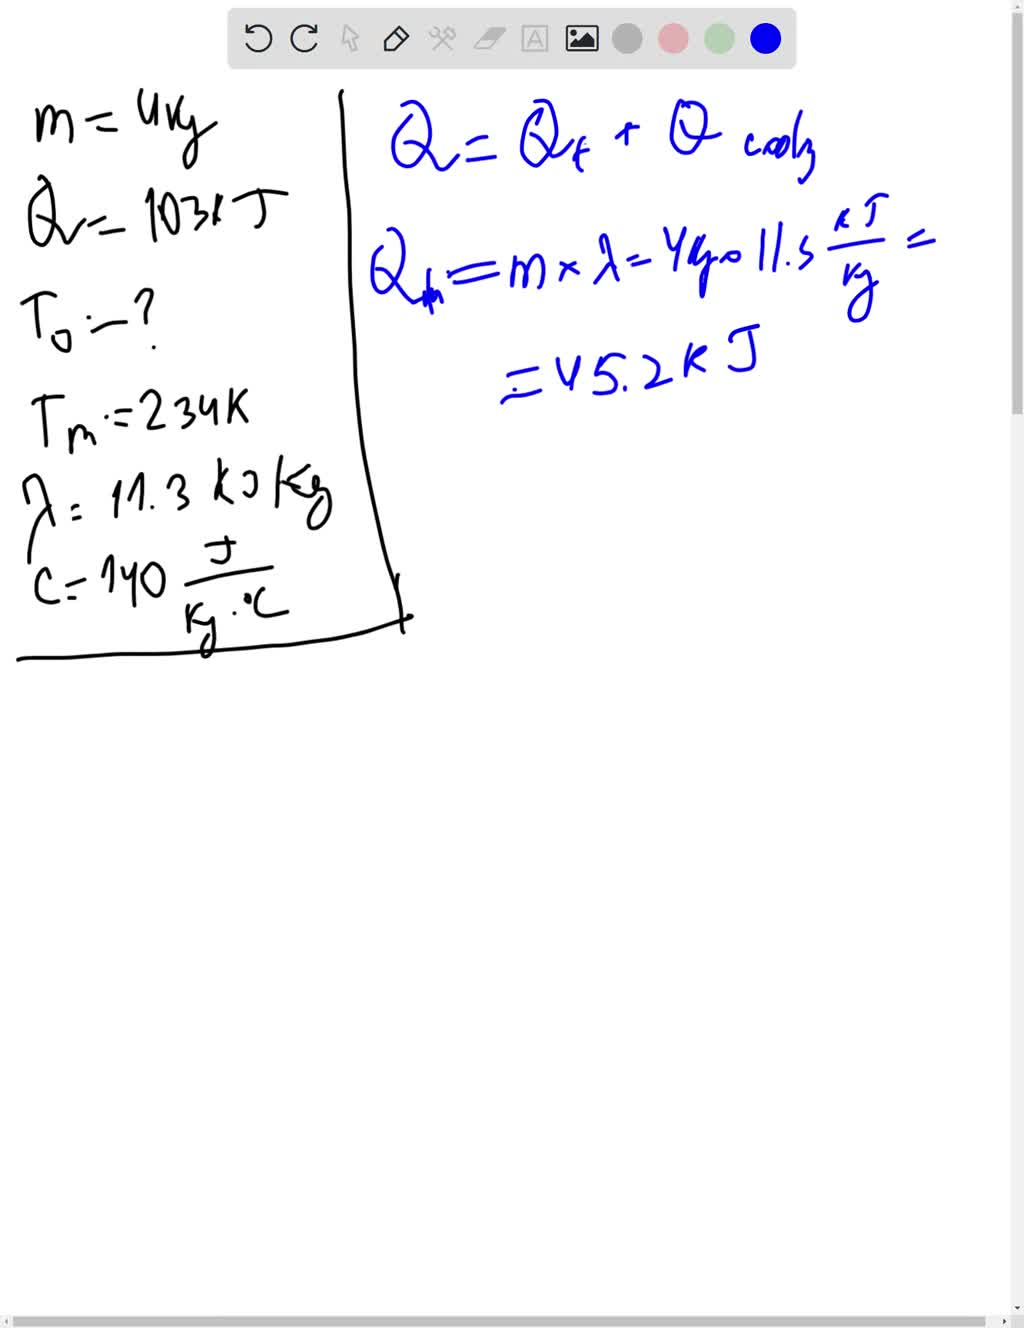 m = 4kg
Q = 103kJ
T₀ - ?
Tm = 234K
λ = 11.3 kJ/kg
C = 140 J/kg·°C
Q = Qf + Q cooling
Qm = m × λ = 4kg · 11.3 kJ/kg =
= 45.2 kJ